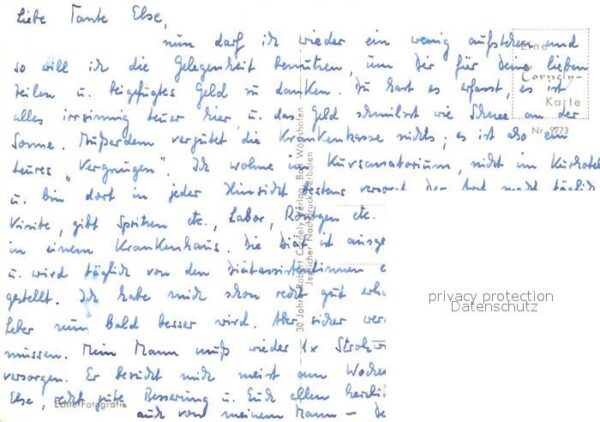 Liebe Tante Else,
nun darf ich wieder ein wenig aufstehen und
so will ich die Gelegenheit benutzen, um Dir für Deine lieben
Zeilen u. beigefügtes Geld zu danken. Du hast es erfasst, es ist
alles irrsinnig teuer hier u. das Geld schmilzt wie Schnee an der
Sonne. Außerdem vergütet die Krankenkasse nichts; es ist also ein
teures „Vergnügen". Ich wohne im Kursanatorium, nicht im Kurhotel
u. bin dort in jeder Hinsicht bestens versorgt. Der Arzt macht täglich
Visite, gibt Spritzen etc., Labor, Röntgen etc.
in einem Krankenhaus. Die Diät ist ausge
u. wird täglich von den Diätassistentinnen
gestellt. Ich habe mich schon recht gut erho
Leber nun bald besser wird. Aber sicher wer
müssen. Mein Mann muß wieder 1x Stroh
versorgen. Er besucht mich meist am Wochen
Else, recht gute Besserung u. Euch allen herzli
auch von meinem Mann – De
Eine
Cornely-
Karte
Nr. 9773
30 Jahre Robert Cornely Verlag, Bad Wörishofen
Jeglicher Nachdruck verboten
Echte Fotografie
privacy protection
Datenschutz